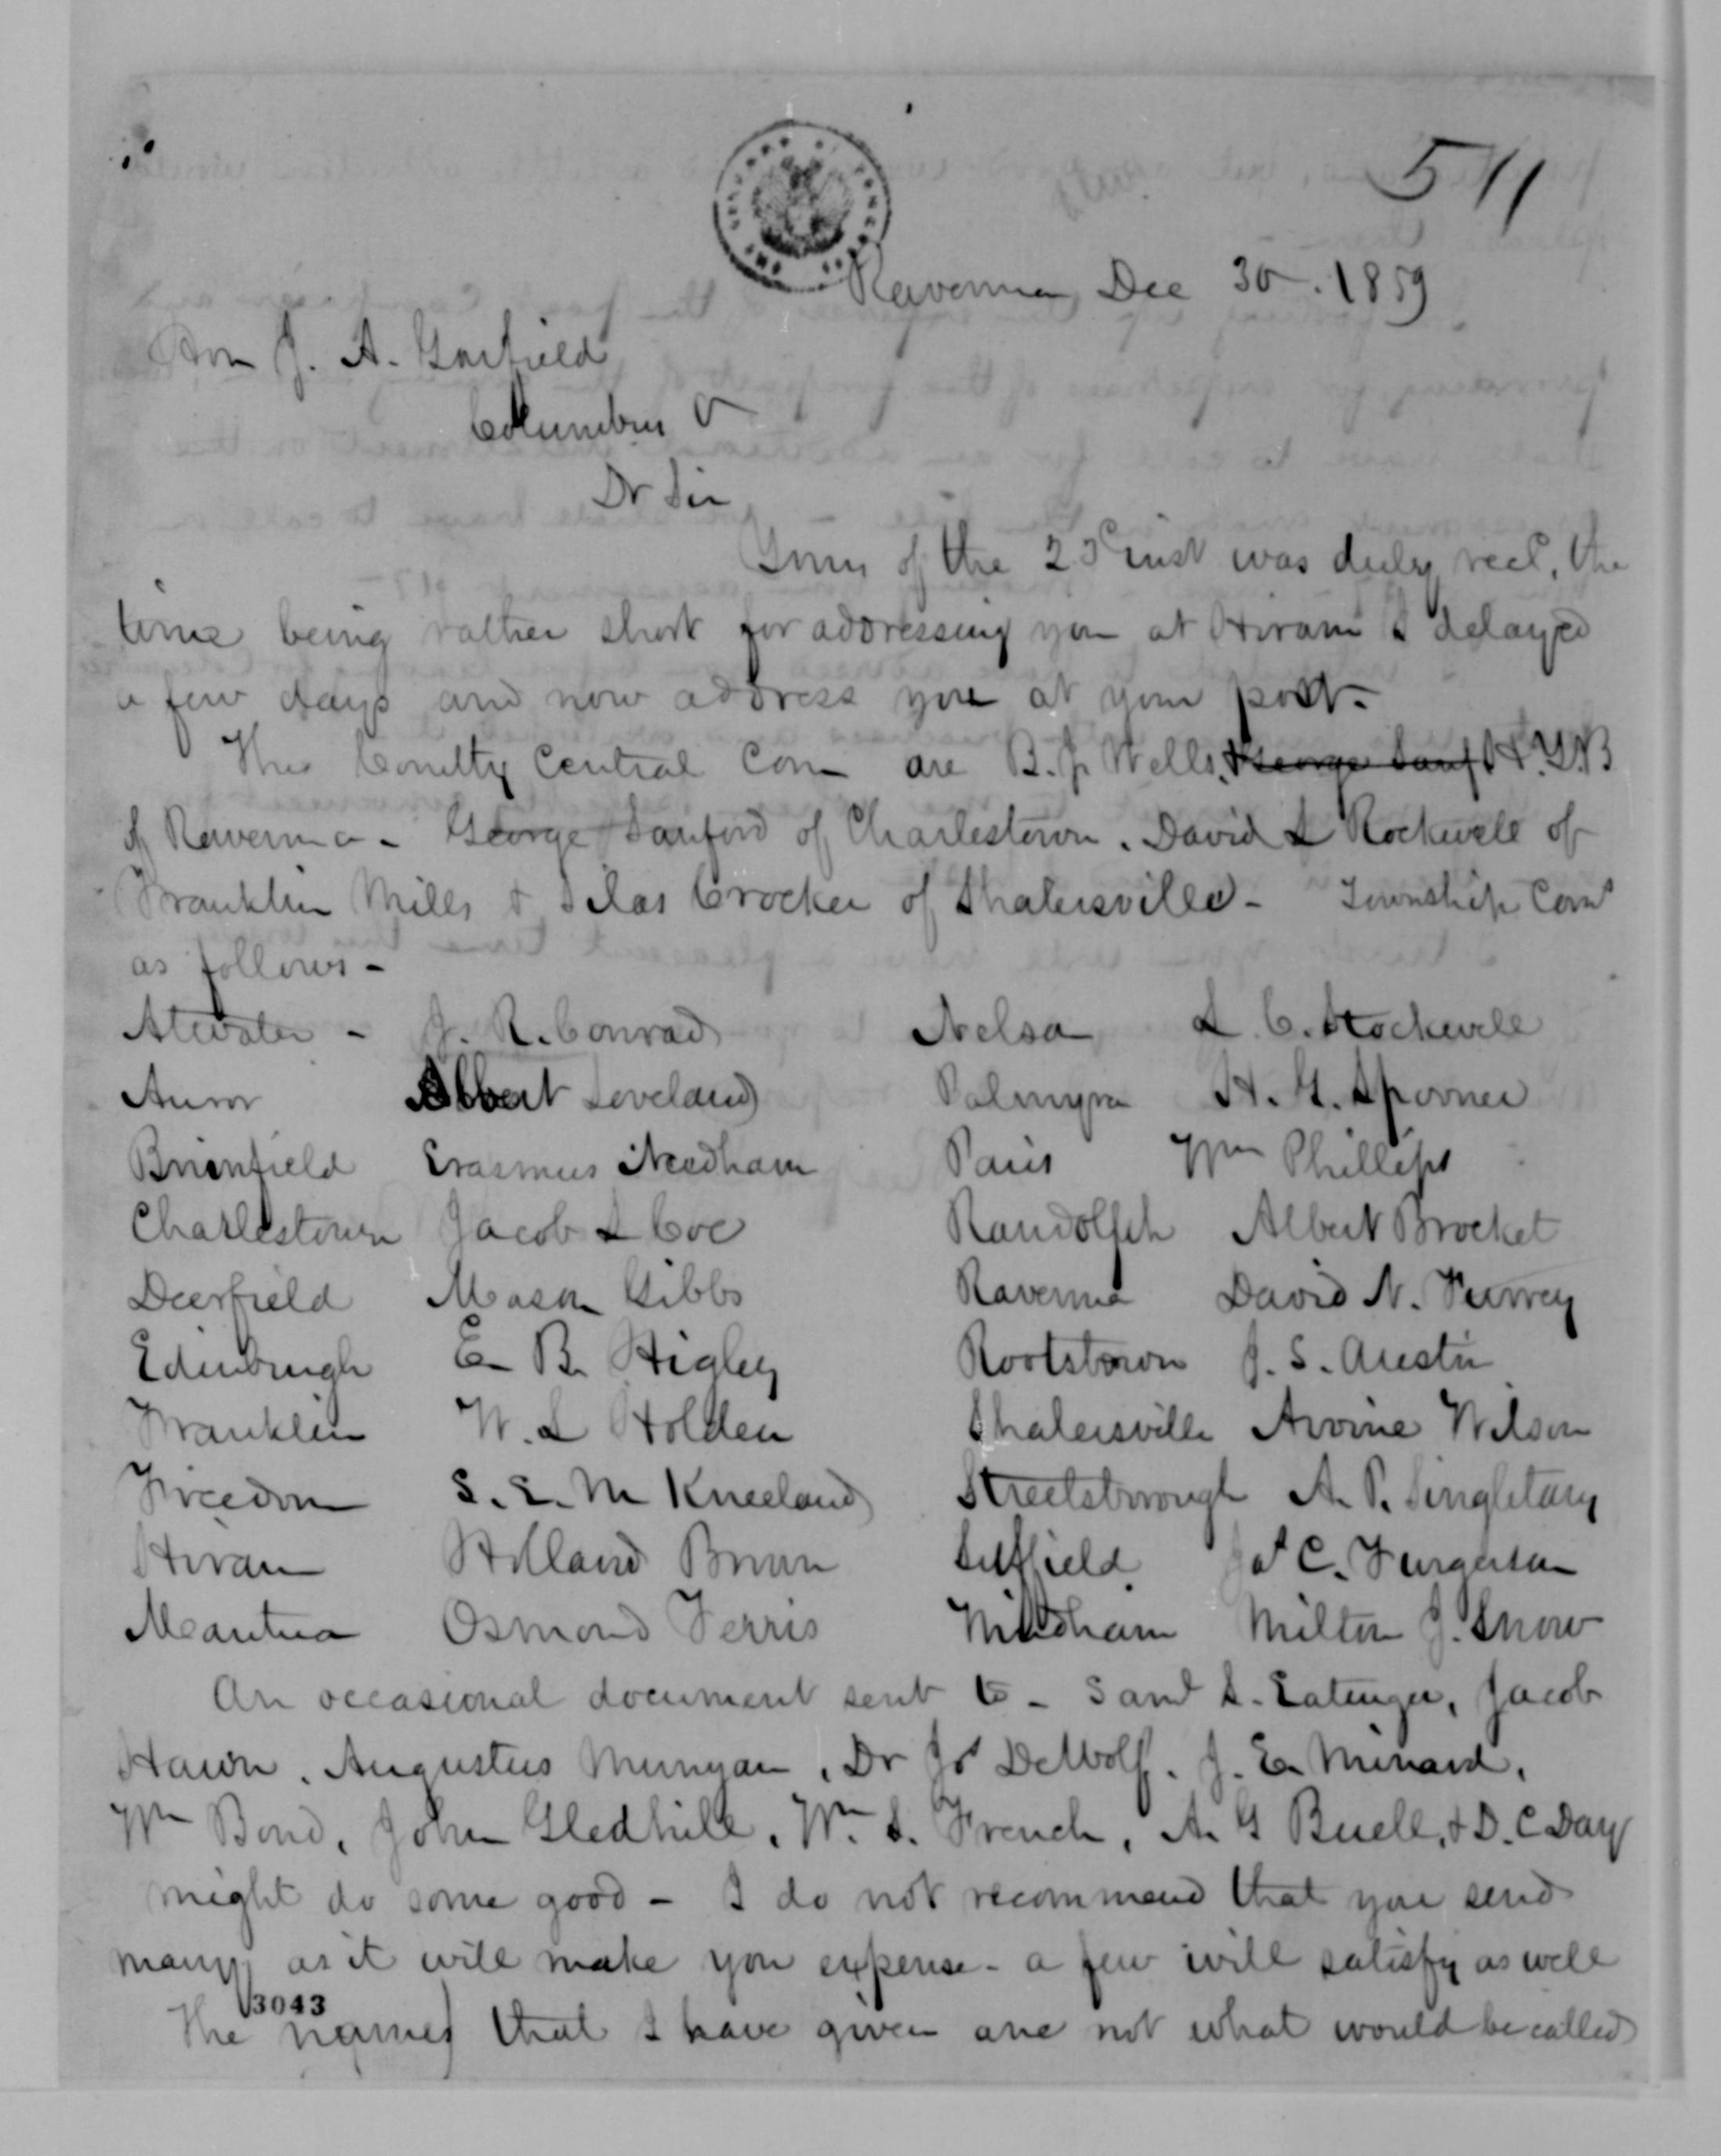 511
Ravenna Dec 30. 1859
Hon J. A. Garfield
Columbus O
Dr Sir
Yours of the 23d inst was duly recd, the
time being rather short for addressing you at Hiram I delayed
a few days and now address you at your post-
The County Central Com are B. J. Wells, & George Sanf H.Y.B
of Ravenna - George Sanford of Charlestown. David L Rockwell of
Franklin Mills & Silas Crocker of Shalersville - Township Coms
as follows -
Atwater - J. R. Conrad Nelson L C. Stockwell
Auror Albert Loveland Palmyra H. G. Spooner
Brimfield Erasmus Needham Paris Wm Phillips
Charlestown Jacob L Coe Randolph Albert Brocket
Deerfield Mason Gibbs Ravenna David N. Furrey
Edinburgh E B. Higley Rootstown J. S. Austin
Franklin W. L Holden Shalersville Arvine Wilson
Freedom S. E. M Kneeland Streetsborough A. P. Singletary
Hiram Holland Brown Suffield Jas C. Furgerson
Mantua Osmond Ferris Windham Milton J. Snow
An occasional document sent to - Saml S. Eatinger, Jacob
Hawn, Augustus Munyan, Dr Js DeWolf. J. E. Minard,
Wm Bond, John Gledhill, Wm S. French, A. G Buell, & D. C Day
might do some good - I do not recommend that you send
many as it will make you expense - a few will satisfy as well
3043
The names that I have given are not what would be called